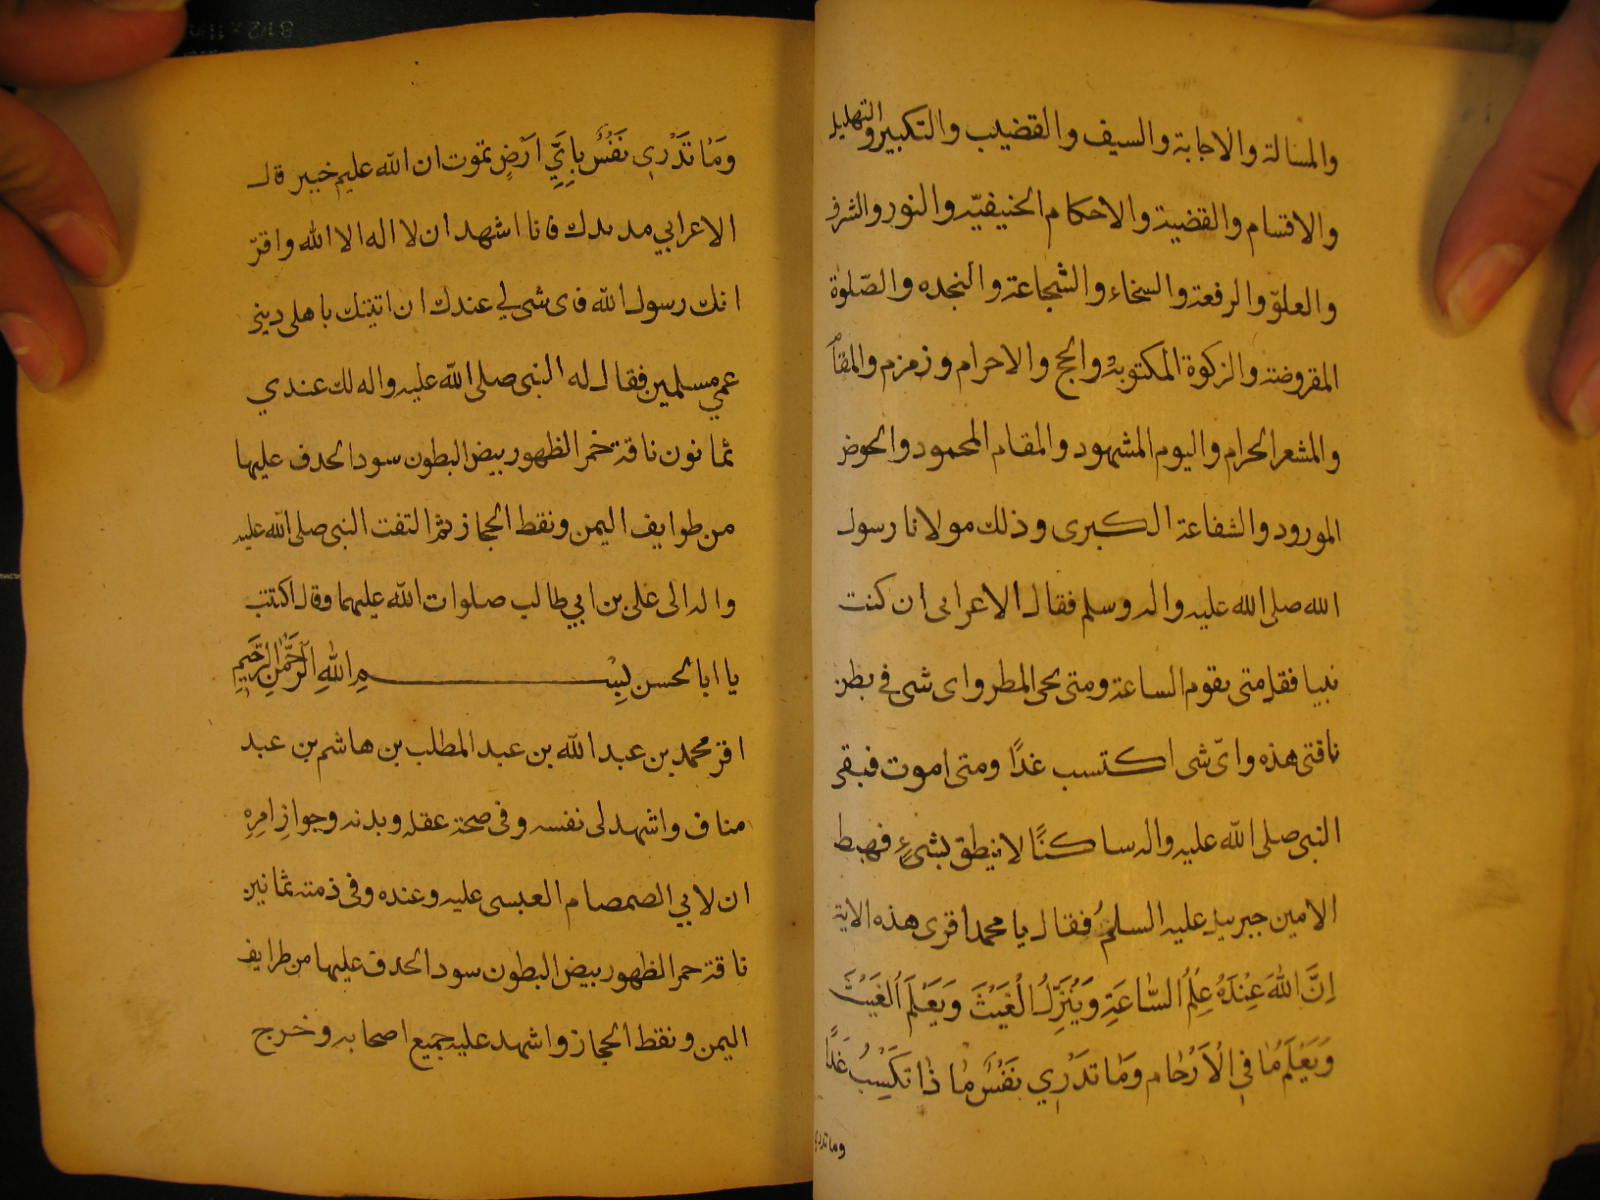 والمسالة والاجابة والسيف والقضيب والتكبير والتهليل
والاقسام والقضية والاحكام الحنيفيّه والنور والشرف
والعلوّ والرفعة والسخاء والشجاعة والنجده والصّلوة
المفروضة والزكوة المكتوبة والحج والاحرام وزمزم والمقام
والمشعر الحرام واليوم المشهود والمقام المحمود والحوض
المورود والشفاعة الكبرى وذلك مولانا رسول
الله صلى الله عليه واله وسلم فقال الاعرابى ان كنت
نبيا فقل متى يقوم الساعة ومتى يجى المطر واى شى فى بطن
ناقتى هذه واىّ شى اكتسب غدًا ومتى اموت فبقى
النبى صلى الله عليه واله ساكنًا لا ينطق بشىءٍ فهبط
الامين جبريل عليه السلمُ فقال يا محمد اقرى هذه الاية
اِنَّ اللهَ عِنْدَهُ عِلْمُ السَّاعَةِ وَيُنَزِّلُ الْغَيْثَ وَيَعْلَمُ الْغَيْثَ
وَيَعْلَمُ مَا فِى الْاَرْحَامِ وَمَا تَدْرِي نَفْسٌ مَا ذَا تَكْسِبُ غَدًا
وما تدرى
وَمَا تَدْرِى نَفْسٌ بِاَيِّ اَرْضٍ تموت ان الله عليم خبير قال
الاعرابي مد يدك فانا اشهد ان لا اله الا الله واقرّ
انك رسول الله فاى شى لي عندك ان اتيتك باهلى وبنى
عمي مسلمين فقال له النبى صلى الله عليه واله لك عندي
ثمانون ناقة حمر الظهور بيض البطون سود الحدق عليها
من طوايف اليمن ونقط الحجاز ثم التفت النبى صلى الله عليه
واله الى على بن ابي طالب صلوات الله عليهما وقال اكتب
يا ابا الحسن بِسْمِ اللهِ الرَّحْمَنِ الرَّحِيمِ
اقر محمد بن عبد الله بن عبد المطلب بن هاشم بن عبد
مناف واشهد لى نفسه وفى صحة عقله وبدنه وجوازِ امرِهِ
ان لابي الصمصام العبسى عليه وعنده وفى ذمته ثمانين
ناقة حمر الظهور بيض البطون سود الحدق عليها من طرايف
اليمن ونقط الحجاز واشهد عليه جميع اصحابه وخرج